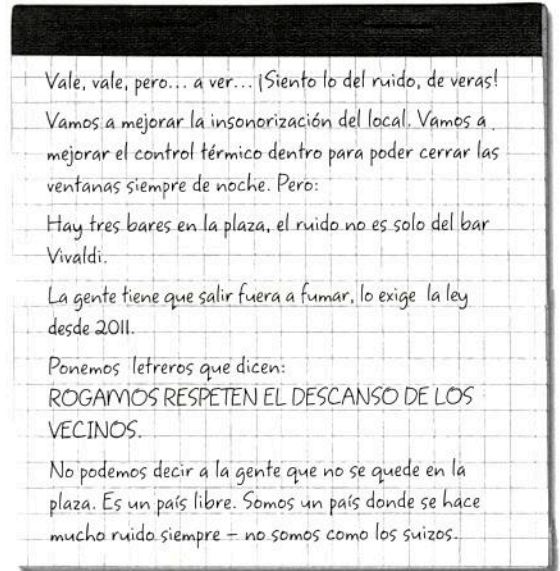 Vale, vale, pero... a ver... ¡Siento lo del ruido, de veras!
Vamos a mejorar la insonorización del local. Vamos a
mejorar el control térmico dentro para poder cerrar las
ventanas siempre de noche. Pero:
Hay tres bares en la plaza, el ruido no es solo del bar
Vivaldi.
La gente tiene que salir fuera a fumar, lo exige la ley
desde 2011.
Ponemos letreros que dicen:
ROGAMOS RESPETEN EL DESCANSO DE LOS
VECINOS.
No podemos decir a la gente que no se quede en la
plaza. Es un país libre. Somos un país donde se hace
mucho ruido siempre – no somos como los suizos.